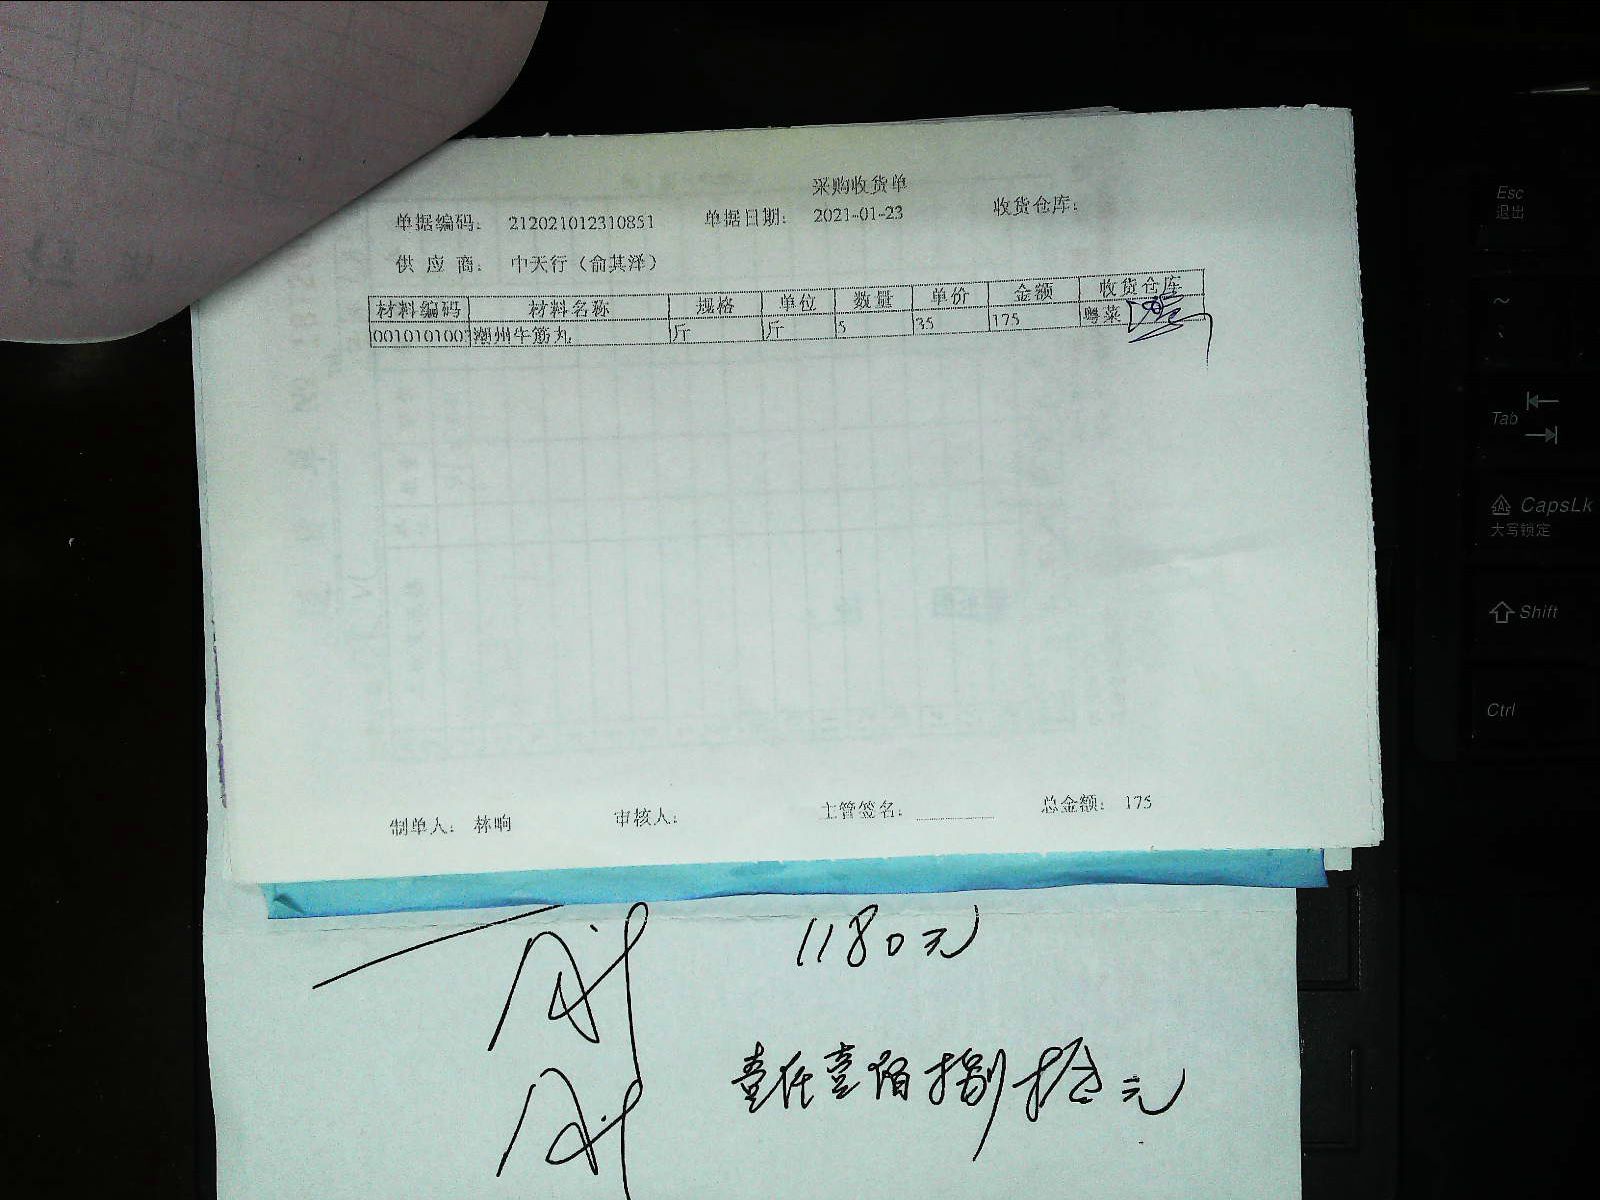 采购收货单
单据编码： 212021012310851 单据日期： 2021-01-23 收货仓库：
供 应 商： 中天行（俞其泽）
材料编码 材料名称 规格 单位 数量 单价 金额 收货仓库
0010101003 潮州牛筋丸 斤 斤 5 35 175 粤菜
制单人： 林晌 审核人： 主管签名： 总金额： 175
1180元
壹仟壹佰捌拾元
Esc
退出
~
Tab
CapsLk
大写锁定
Shift
Ctrl